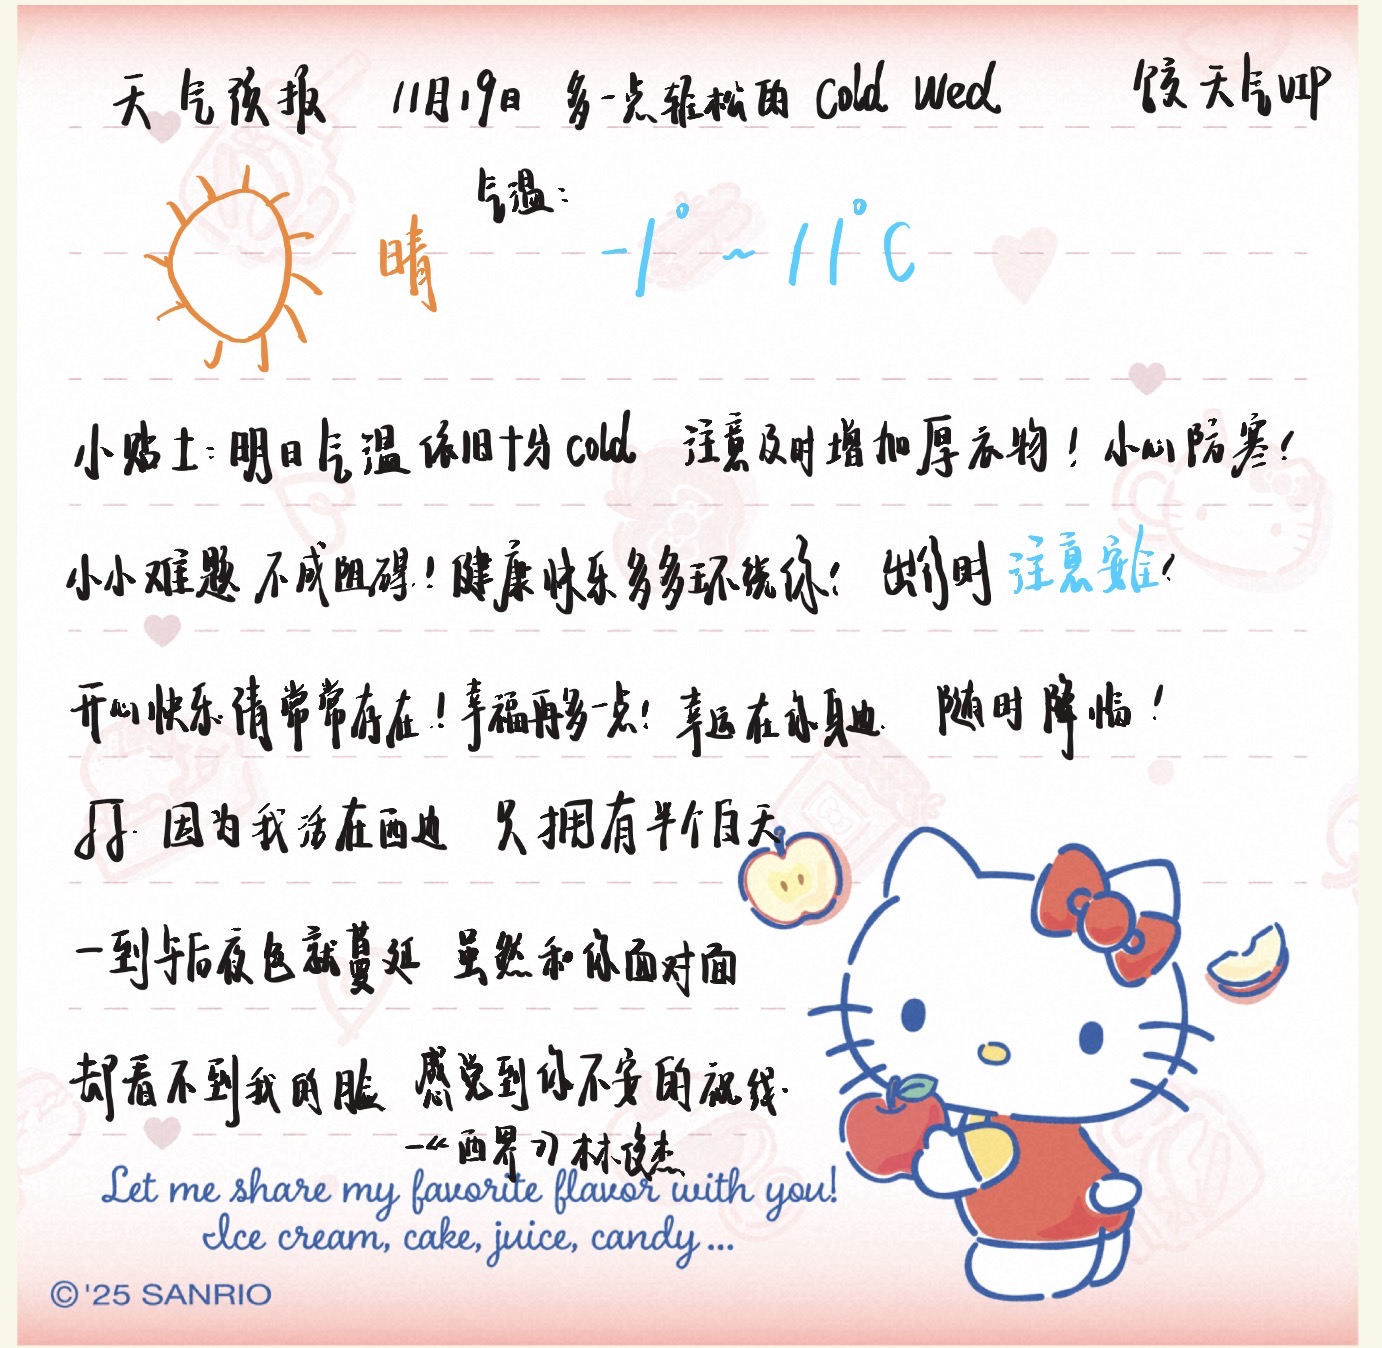 天气预报 11月19日 多一点轻松的 Cold Wed 饺天气VIP
气温:
晴 -1°~11°C
小贴士:明日气温依旧十分cold 注意及时增加厚衣物!小心防寒!
小小难题不成阻碍!健康快乐多多环绕你!出行时注意安全!
开心快乐请常常存在!幸福再多一点!幸运在你身边 随时降临!
♫. 因为我活在西边 只拥有半个白天
一到午后夜色就蔓延 虽然和你面对面
却看不到我的脸 感觉到你不安的视线.
—《西界》林俊杰
Let me share my favorite flavor with you!
Ice cream, cake, juice, candy...
©'25 SANRIO